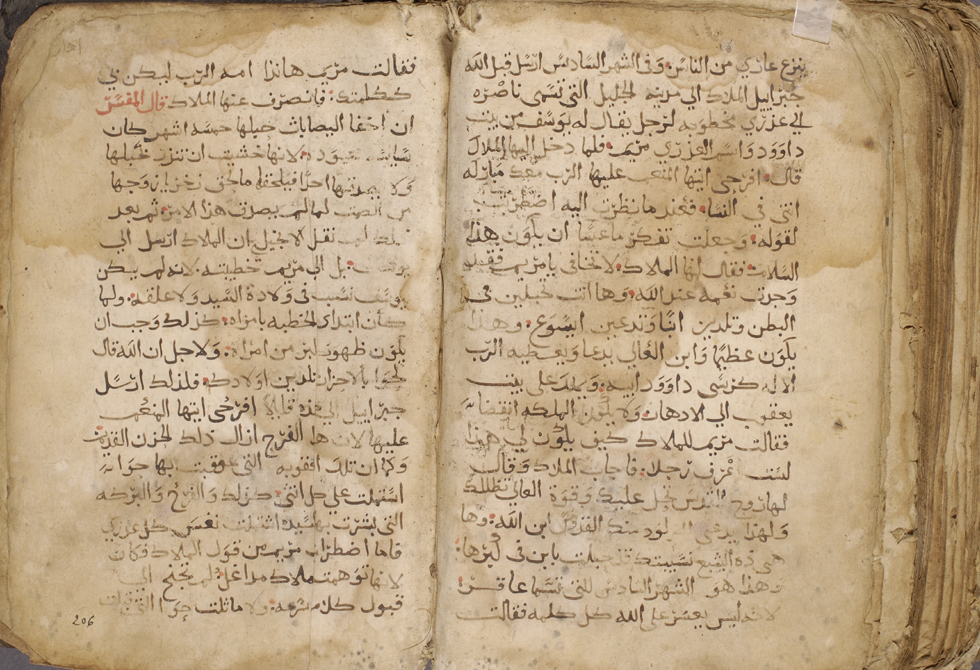 ينزع عاري من الناس وفي الشهر السادس ارسل قبل الله
جبراييل الملاك الي مدينه الجليل التي تسمى ناصره
الي عذري مخطوبه لرجل يقال له يوسف من بيت
داوود واسم العذري مريم فلما دخل اليها الملاك
قال افرحي ايتها المنعم عليها الرب معك مباركه
انتي في النسا فعند ما نظرت اليه اضطربت
لقوله وجعلت تفكر ما عسا ان يكون هذا
السلام فقال لها الملاك لا تخافي يا مريم فقد
وجدت نعمه عند الله وها انت حبلين في
البطن وتلدين ابنا وتدعين ايسوع وهذا
يكون عظيما وابن العالي يدعا ويعطيه الرب
الاله كرسي داوود ابيه ويملك على بيت
يعقوب الي الادهار ولا يكون لملكه انقضا
فقالت مريم للملاك كيف يكون لي هذا
لست اعرف رجلا فاجاب الملاك وقال
لها روح القدس تحل عليك وقوة العالي تظللك
ولهذا يدعى المولود منك القدوس ابن الله وها
نسيبتك قد حبلت بابن في كبرها
وهذا هو الشهر السادس للتي تسما عاقرا
لانه ليس يعسر على الله كل كلمه فقالت
فقالت مريم هانذا امه الرب ليكن لي
ككلمتك فانصرف عنها الملاك قال المفسر
ان اخفا اليصابات حبلها خمسه اشهر كان
لانها خشيت ان تبرز بحبلها
ولا احدا
لما لم يصدق هذا الامر ثم بعد
نقل الانجيل ان الملاك ارسل الي
يوسف بل الي مريم خطيبته لانه لم يكن
يوسف نسب في ولادة السيد ولا علقه ولما
كان ابتداء الخطيه بامراه كذلك وجب ان
يكون ظهور البر من امراه ولاجل ان الله قال
لحوا بالاحزان تلدين اولادك فلذلك ارسل
جبراييل الي هذه قايلا افرحي ايتها المنعم
عليها لان هذا الفرح ازال ذلك الحزن القديم
وكما ان تلك العقوبه التي عوقبت بها حوا
اشتملت على كل انثى كذلك والفرح والبركه
التي بشرت بها السيده اشتملت نفس كل عذري
فاما اضطراب مريم من قول الملاك فكان
لانها توهمت ملاك لم تجنح الي
قبول كلام بسرعه ولا ماثلت حوا التي
206